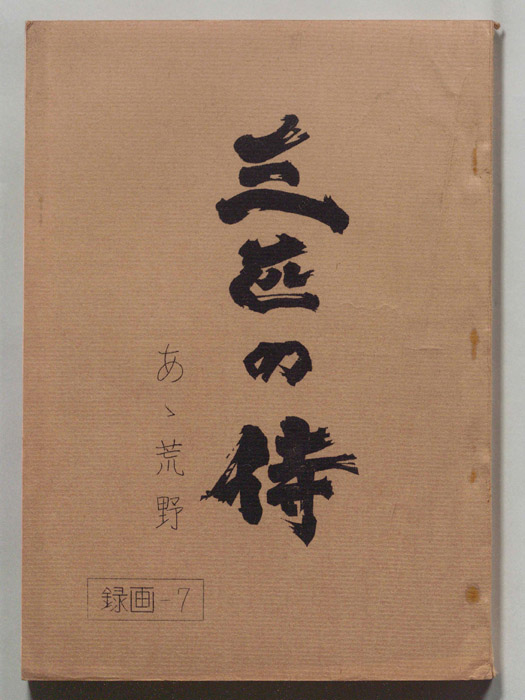 三匹の侍
あゝ荒野
録画-7